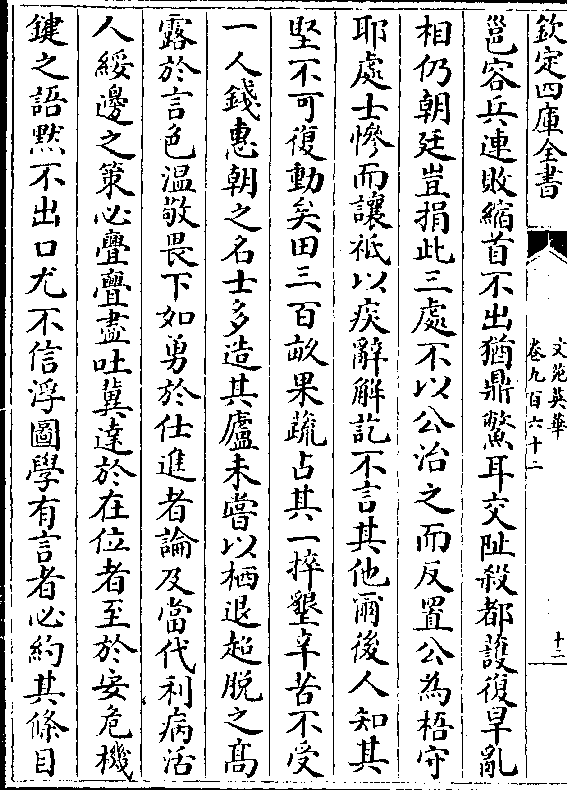 欽定四庫全書
文苑英華
卷九百六十二
十二
邕容兵連敗縮首不出猶鼎鱉耳交阯殺都護復早亂
相仍朝廷豈捐此三處不以公治之而反置公為梧守
耶處士慘而讓祇以疾辭解訖不言其他爾後人知其
堅不可復動矣田三百畝果蔬占其一捽墾辛苦不受
一人錢惠朝之名士多造其廬未嘗以栖退超脱之髙
露於言色温敬畏下如勇於仕進者論及當代利病活
人綏邊之策必亹亹盡吐冀達於在位者至於安危機
鍵之語默不出口尤不信浮圖學有言者必約其條目